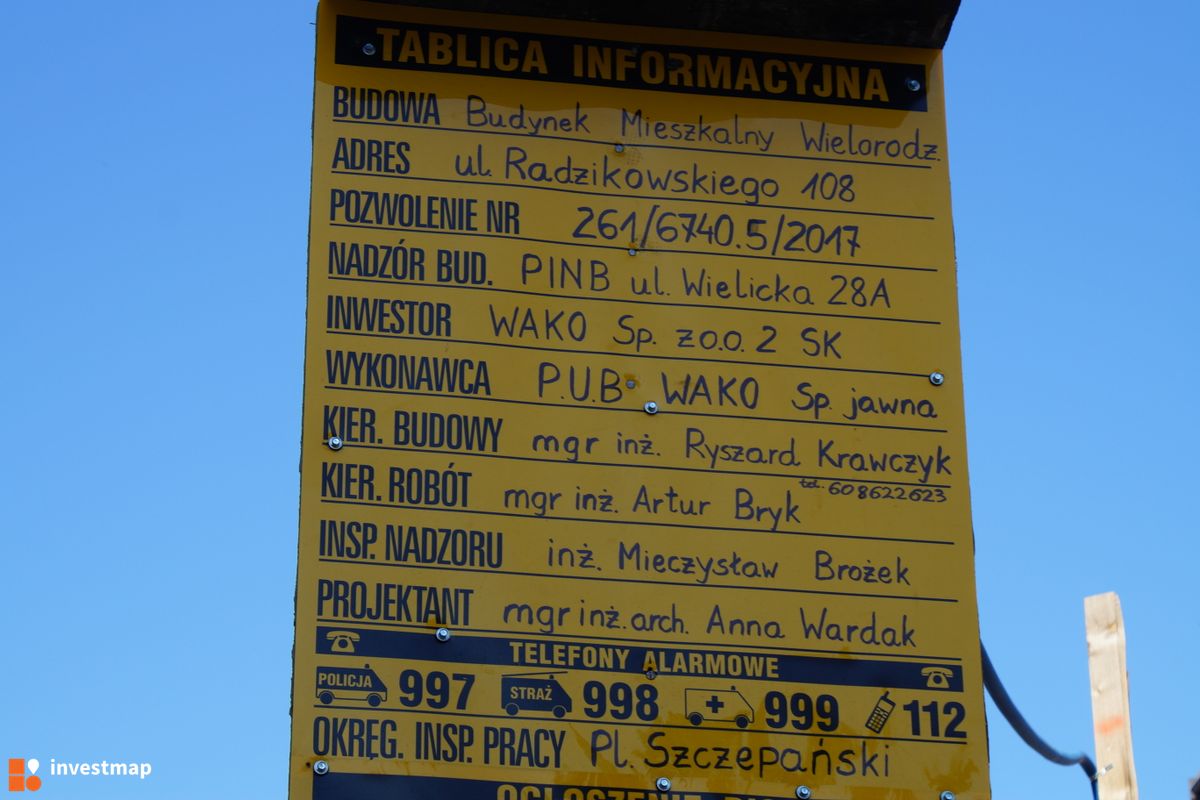 TABLICA INFORMACYJNA
BUDOWA Budynek Mieszkalny Wielorodz.
ADRES ul. Radzikowskiego 108
POZWOLENIE NR 261/6740.5/2017
NADZÓR BUD. PINB ul. Wielicka 28A
INWESTOR WAKO Sp. zo.o. 2 SK
WYKONAWCA P.U.B WAKO Sp. jawna
KIER. BUDOWY mgr inż. Ryszard Krawczyk
tel. 608622623
KIER. ROBÓT mgr inż. Artur Bryk
INSP. NADZORU inż. Mieczysław Brożek
PROJEKTANT mgr inż. arch. Anna Wardak
TELEFONY ALARMOWE
POLICJA 997 STRAŻ 998 999 112
OKRĘG. INSP. PRACY Pl. Szczepański
investmap